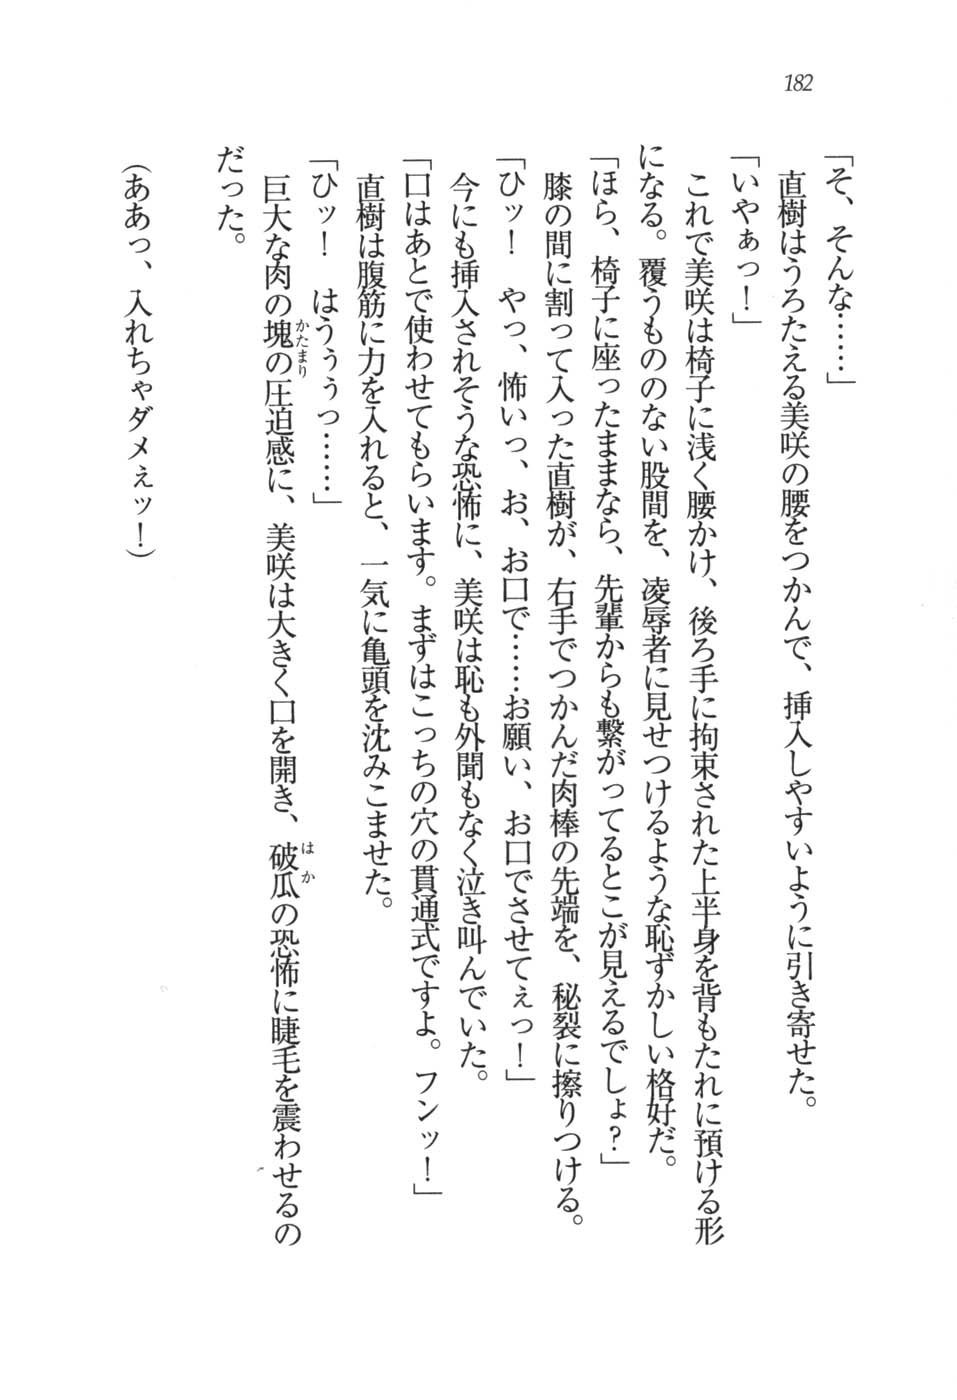 182
「そ、そんな……」
直樹はうろたえる美咲の腰をつかんで、挿入しやすいように引き寄せた。
「いやぁっ！」
これで美咲は椅子に浅く腰かけ、後ろ手に拘束された上半身を背もたれに預ける形
になる。覆うもののない股間を、凌辱者に見せつけるような恥ずかしい格好だ。
「ほら、椅子に座ったままなら、先輩からも繋がってるとこが見えるでしょ？」
膝の間に割って入った直樹が、右手でつかんだ肉棒の先端を、秘裂に擦りつける。
「ひッ！　やっ、怖いっ、お、お口で……お願い、お口でさせてぇっ！」
今にも挿入されそうな恐怖に、美咲は恥も外聞もなく泣き叫んでいた。
「口はあとで使わせてもらいます。まずはこっちの穴の貫通式ですよ。フンッ！」
直樹は腹筋に力を入れると、一気に亀頭を沈みこませた。
「ひッ！　はうぅぅっ……」
巨大な肉の塊かたまりの圧迫感に、美咲は大きく口を開き、破瓜はかの恐怖に睫毛を震わせるの
だった。
（ああっ、入れちゃダメぇッ！）